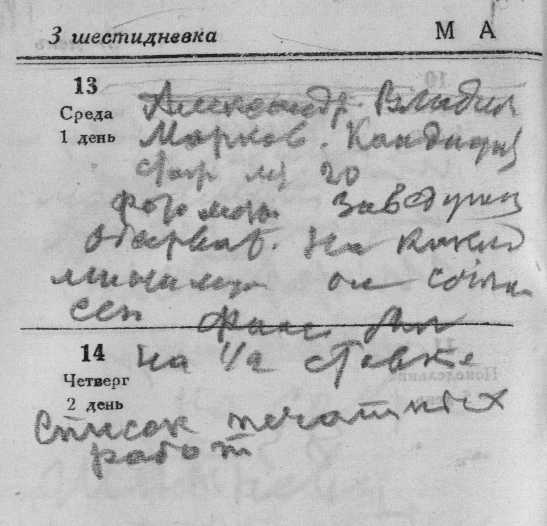 3 шестидневка МА
13
Среда
1 день
Александр. Владим
Марков. Кандидат
20
Заведующ
Обсерват. На каких
он согла
сен
14
Четверг
2 день
На 1/2 ставке
Список печатных
работ